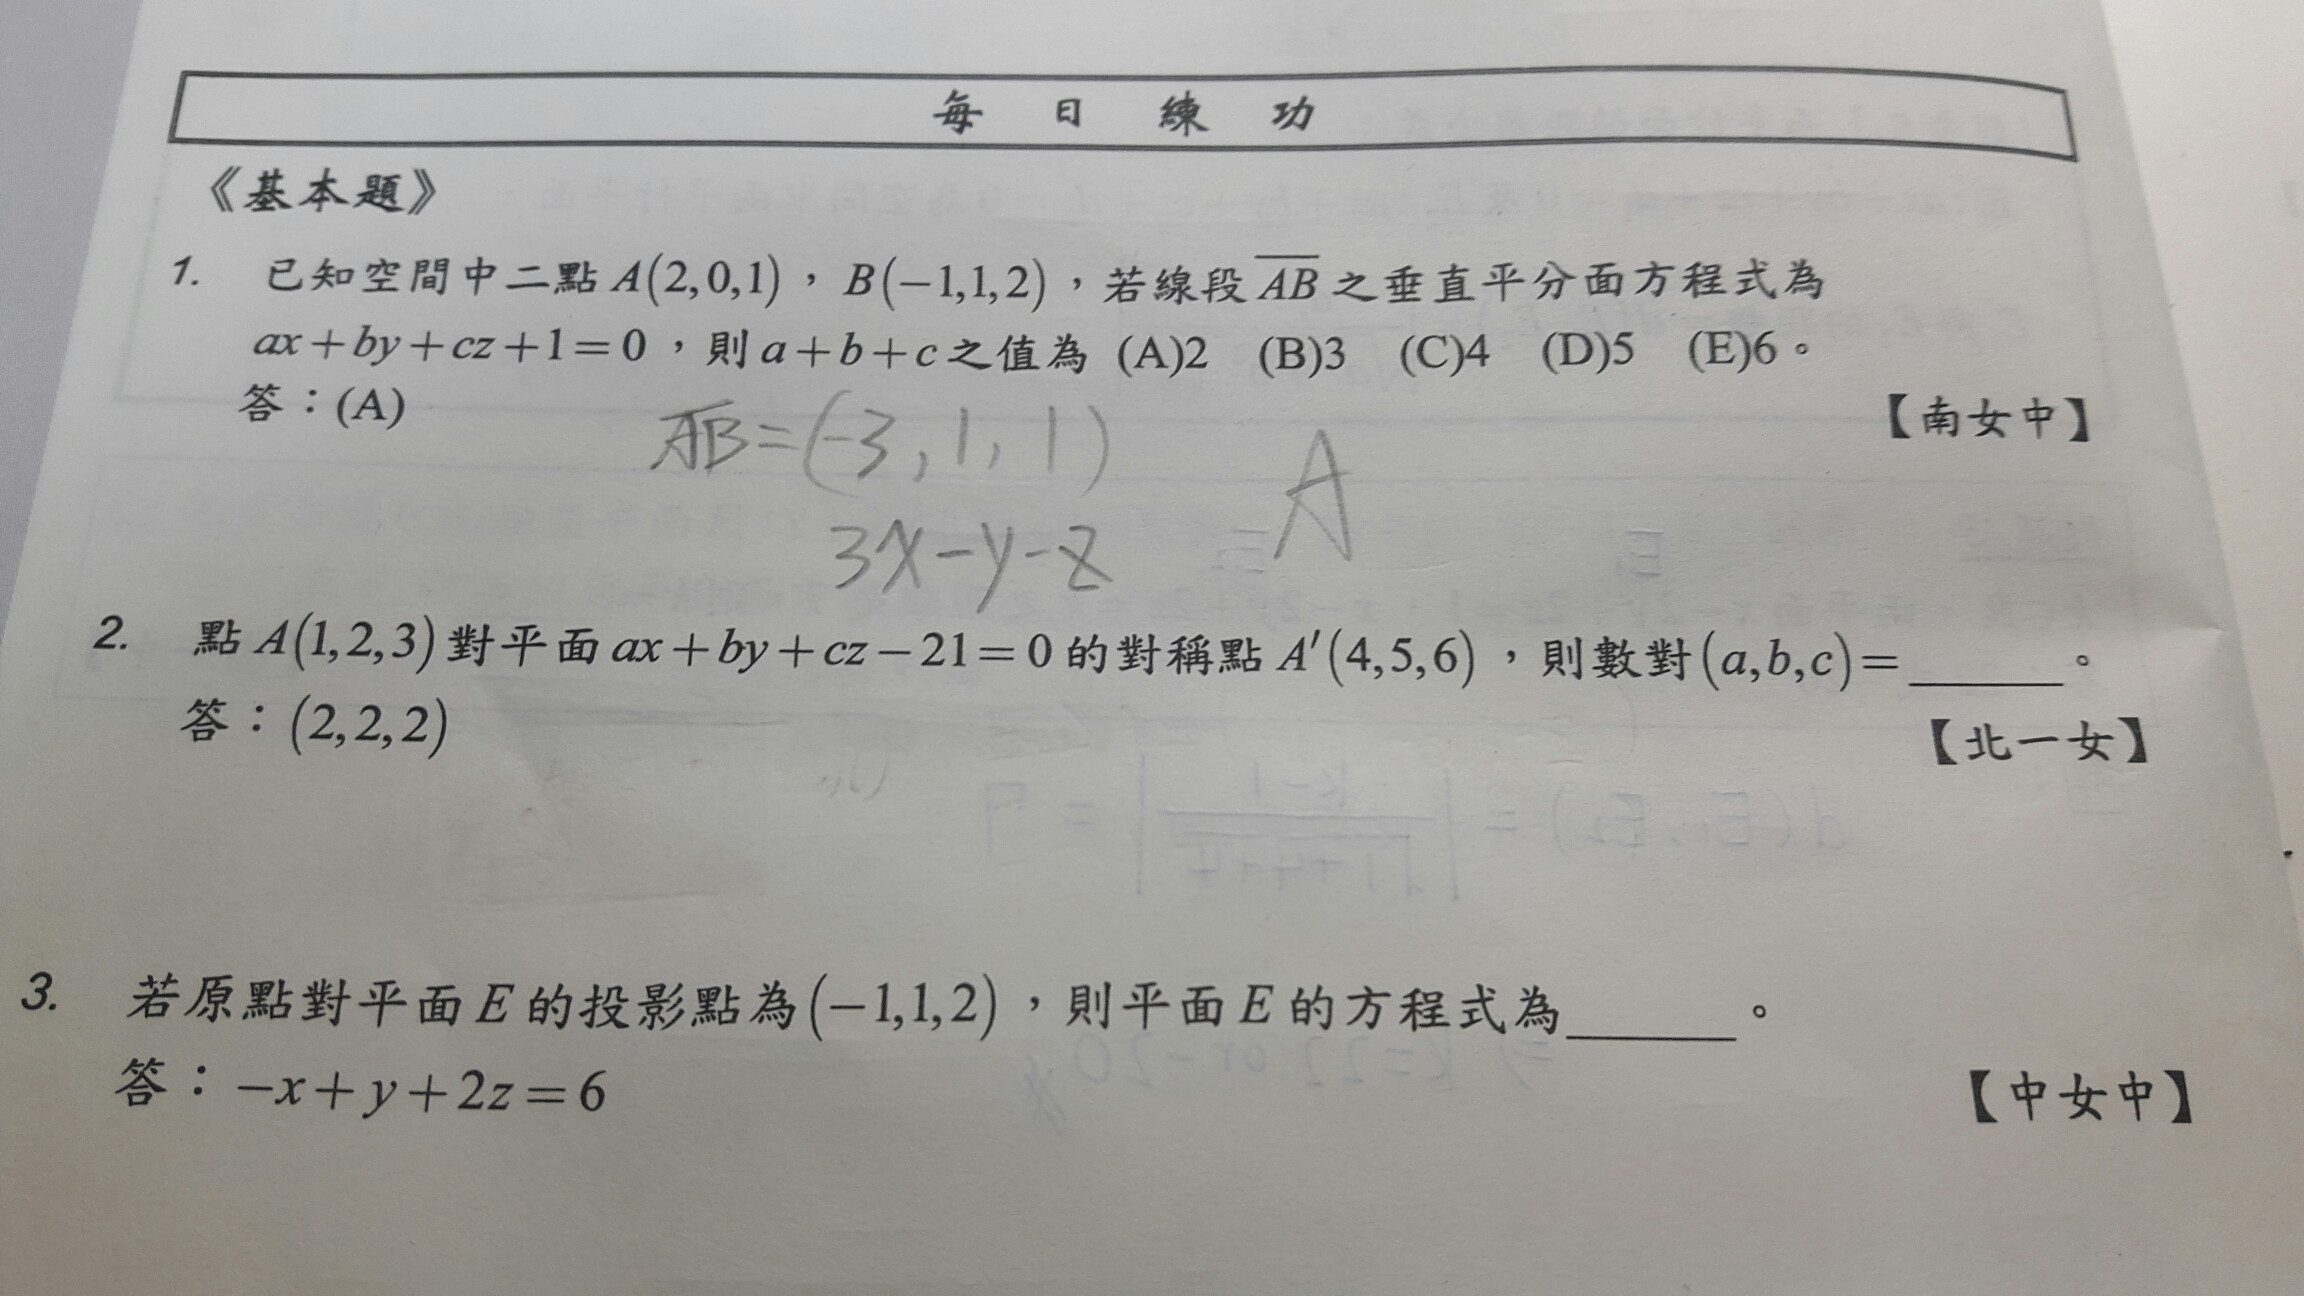 每日練功
《基本題》
1. 已知空間中二點 A(2,0,1)，B(−1,1,2)，若線段 \overline{AB} 之垂直平分面方程式為
ax+by+cz+1=0，則 a+b+c 之值為 (A)2 (B)3 (C)4 (D)5 (E)6。
答：(A)
【南女中】
\overline{AB}=(-3,1,1)
A
3x-y-z
2. 點 A(1,2,3) 對平面 ax+by+cz−21=0 的對稱點 A′(4,5,6)，則數對 (a,b,c)=______。
答：(2,2,2)
【北一女】
3. 若原點對平面 E 的投影點為 (−1,1,2)，則平面 E 的方程式為______。
答：−x+y+2z=6
【中女中】